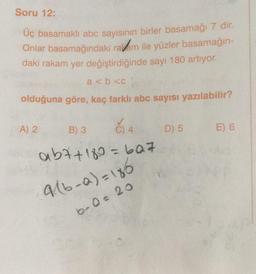 Soru 12:
Üç basamaklı abc sayısının birler basamağı 7 dir.
Onlar basamağındaki rakam ile yüzler basamağın-
daki rakam yer değiştirdiğinde sayı 180 artıyor.
a < b <c
olduğuna göre, kaç farklı abc sayısı yazılabilir?
A) 2 B) 3 C) 4 D) 5 E) 6
ab7+180 = ba7
9.(b-a)=180
b-a = 20